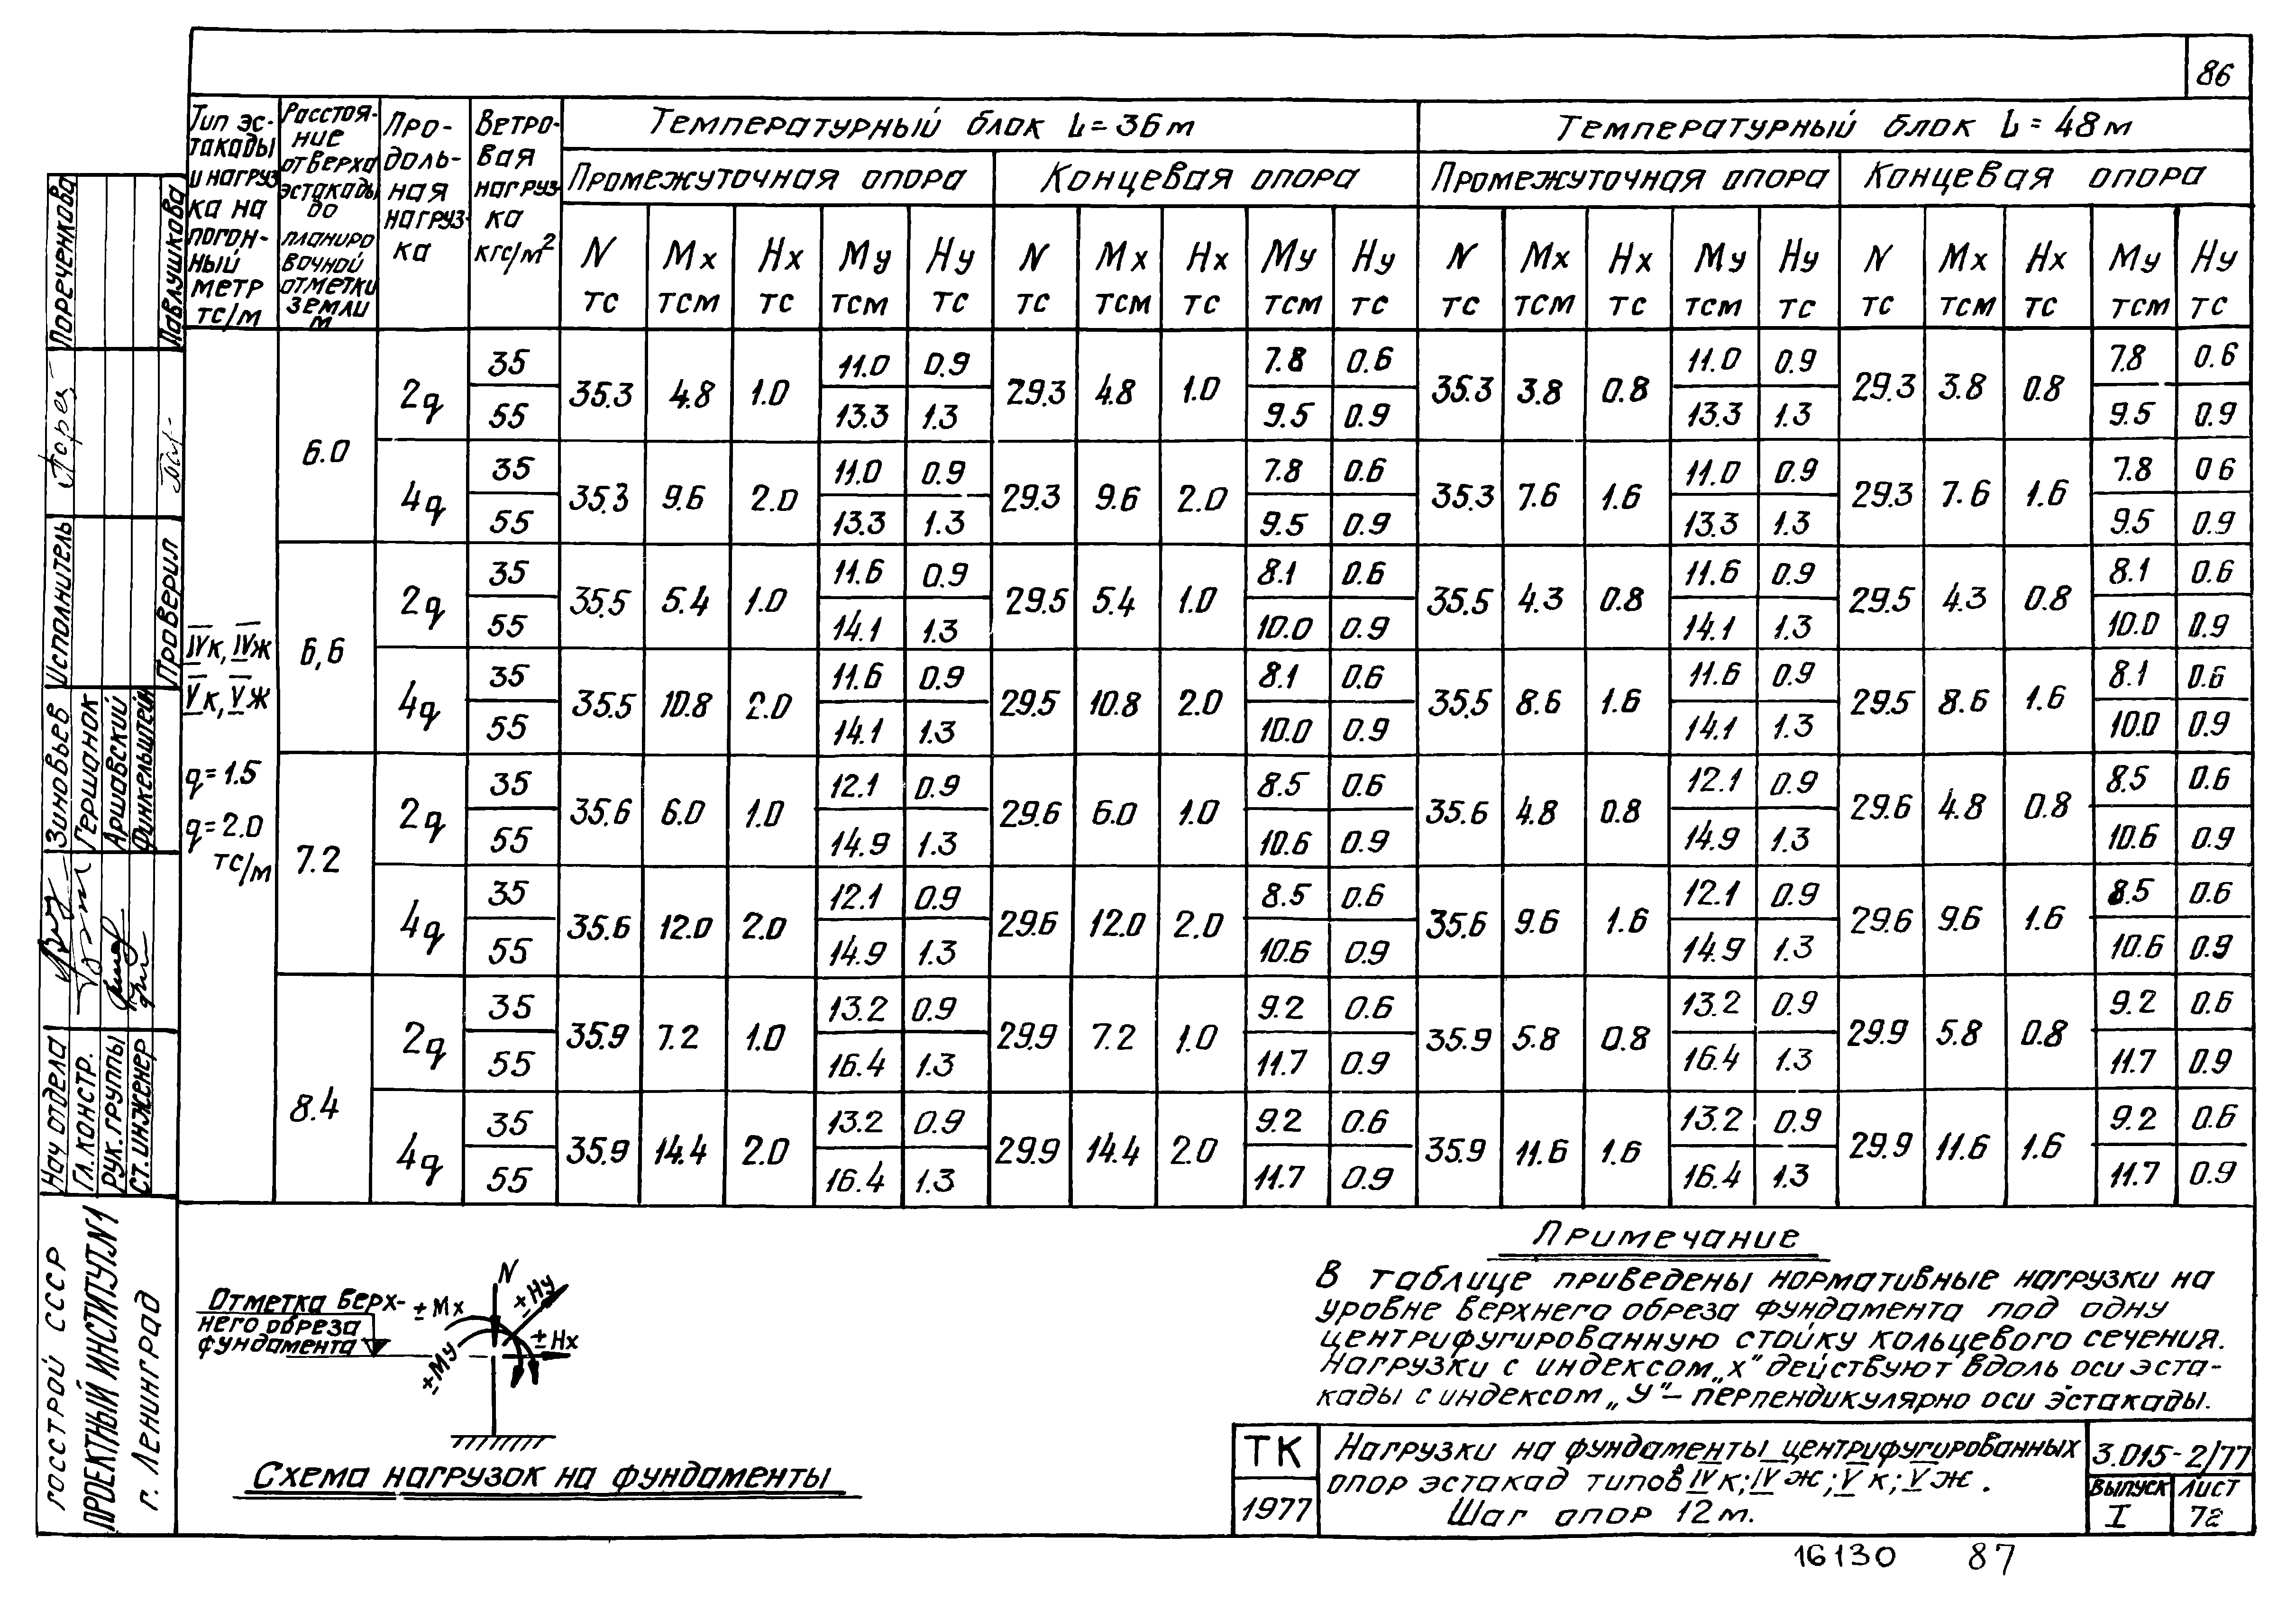 86
Тип эс-
такады
и нагруз
ка на
погон-
ный
метр
тс/м
Расстоя-
ние
от верха
эстакады
до
планиро
вочной
отметки
земли
м
Про-
доль-
ная
нагруз-
ка
Ветро-
вая
нагруз-
ка
кгс/м²
Температурный блок L=36м
Температурный блок L=48м
Промежуточная опора Концевая опора Промежуточная опора Концевая опора
N Mx Hx My Hy N Mx Hx My Hy N Mx Hx My Hy N Mx Hx My Hy
тс тсм тс тсм тс тс тсм тс тсм тс тс тсм тс тсм тс тс тсм тс тсм тс
IVк, IVж
Vк, Vж
q=1.5
q=2.0
тс/м
6.0
2q
35 11.0 0.9 7.8 0.6 11.0 0.9 7.8 0.6
35.3 4.8 1.0 29.3 4.8 1.0 35.3 3.8 0.8 29.3 3.8 0.8
55 13.3 1.3 9.5 0.9 13.3 1.3 9.5 0.9
4q
35 11.0 0.9 7.8 0.6 11.0 0.9 7.8 06
35.3 9.6 2.0 29.3 9.6 2.0 35.3 7.6 1.6 29.3 7.6 1.6
55 13.3 1.3 9.5 0.9 13.3 1.3 9.5 0.9
6,6
2q
35 11.6 0.9 8.1 0.6 11.6 0.9 8.1 0.6
35.5 5.4 1.0 29.5 5.4 1.0 35.5 4.3 0.8 29.5 4.3 0.8
55 14.1 1.3 10.0 0.9 14.1 1.3 10.0 0.9
4q
35 11.6 0.9 8.1 0.6 11.6 0.9 8.1 0.6
35.5 10.8 2.0 29.5 10.8 2.0 35.5 8.6 1.6 29.5 8.6 1.6
55 14.1 1.3 10.0 0.9 14.1 1.3 10.0 0.9
7.2
2q
35 12.1 0.9 8.5 0.6 12.1 0.9 8.5 0.6
35.6 6.0 1.0 29.6 6.0 1.0 35.6 4.8 0.8 29.6 4.8 0.8
55 14.9 1.3 10.6 0.9 14.9 1.3 10.6 0.9
4q
35 12.1 0.9 8.5 0.6 12.1 0.9 8.5 0.6
35.6 12.0 2.0 29.6 12.0 2.0 35.6 9.6 1.6 29.6 9.6 1.6
55 14.9 1.3 10.6 0.9 14.9 1.3 10.6 0.9
8.4
2q
35 13.2 0.9 9.2 0.6 13.2 0.9 9.2 0.6
35.9 7.2 1.0 29.9 7.2 1.0 35.9 5.8 0.8 29.9 5.8 0.8
55 16.4 1.3 11.7 0.9 16.4 1.3 11.7 0.9
4q
35 13.2 0.9 9.2 0.6 13.2 0.9 9.2 0.6
35.9 14.4 2.0 29.9 14.4 2.0 35.9 11.6 1.6 29.9 11.6 1.6
55 16.4 1.3 11.7 0.9 16.4 1.3 11.7 0.9
Отметка верх-
него обреза
фундамента
N
±Mx
±Hy
±Hx
±My
Схема нагрузок на фундаменты
Примечание
В таблице приведены нормативные нагрузки на
уровне верхнего обреза фундамента под одну
центрифугированную стойку кольцевого сечения.
Нагрузки с индексом „X" действуют вдоль оси эста-
кады с индексом „У"- перпендикулярно оси эстакады.
ТК
1977
Нагрузки на фундаменты центрифугированных
опор эстакад типов IVк; IVж; Vк; Vж.
Шаг опор 12м.
3.015-2/77
Выпуск Лист
I 72
16130 87
Госстрой СССР
Проектный институт N1
г. Ленинград
Нач отдела Зиновьев
Гл.констр. Гершанок
Рук.группы Аршавский
Ст.инженер Финкельштейн
Исполнитель Пореченкова
Проверил Павлушкова